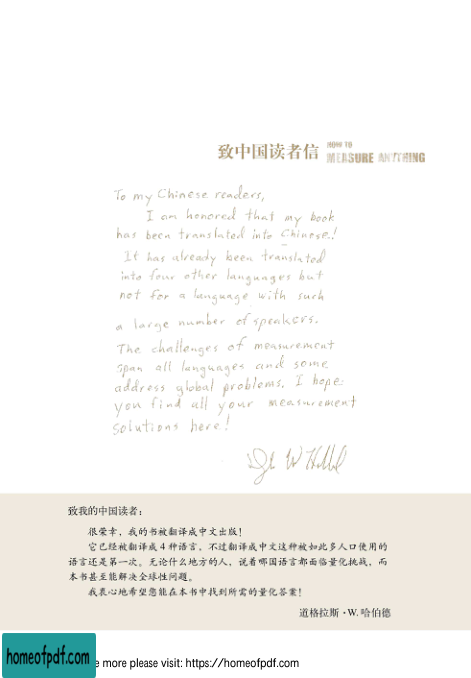 致中国读者信
HOW TO
MEASURE ANYTHING
To my Chinese readers,
I am honored that my book
has been translated into Chinese!
It has already been translated
into four other languages but
not for a language with such
a large number of speakers.
The challenges of measurement
span all languages and some
address global problems. I hope
you find all your measurement
solutions here!
致我的中国读者：
很荣幸，我的书被翻译成中文出版！
它已经被翻译成 4 种语言，不过翻译成中文这种被如此多人口使用的
语言还是第一次。无论什么地方的人，说着哪国语言都面临量化挑战，而
本书甚至能解决全球性问题。
我衷心地希望您能在本书中找到所需的量化答案！
道格拉斯·W. 哈伯德
homeofpdf.com
more please visit: https://homeofpdf.com